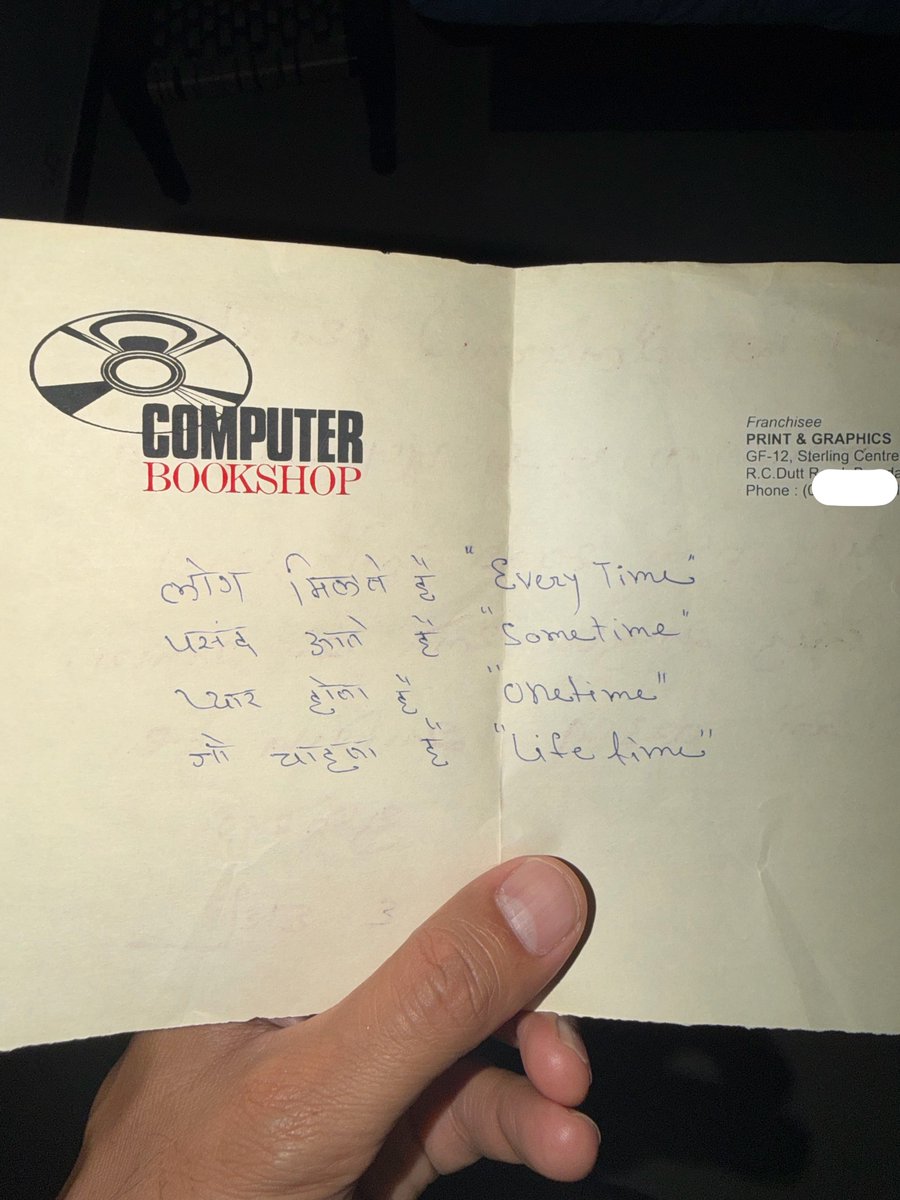 COMPUTER
BOOKSHOP
Franchisee
PRINT & GRAPHICS
GF-12, Sterling Centre
R.C.Dutt
Phone : (
लोग मिलते हैं "Every Time"
पसंद आते हैं "sometime"
प्यार होता है "onetime"
जो चाहता हैं "Life time"